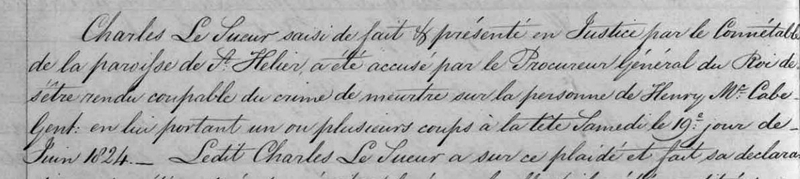 Charles Le Sueur saisi de fait & présenté en Justice par le Connétable
de la paroisse de St. Helier, a été accusé par le Procureur Général du Roi de
s'être rendu coupable du crime de meurtre sur la personne de Henry Mc. Cabe
Gent: en lui portant un ou plusieurs coups à la tête Samedi le 19e. jour de
Juin 1824. — Ledit Charles Le Sueur a sur ce plaidé et fait sa declara